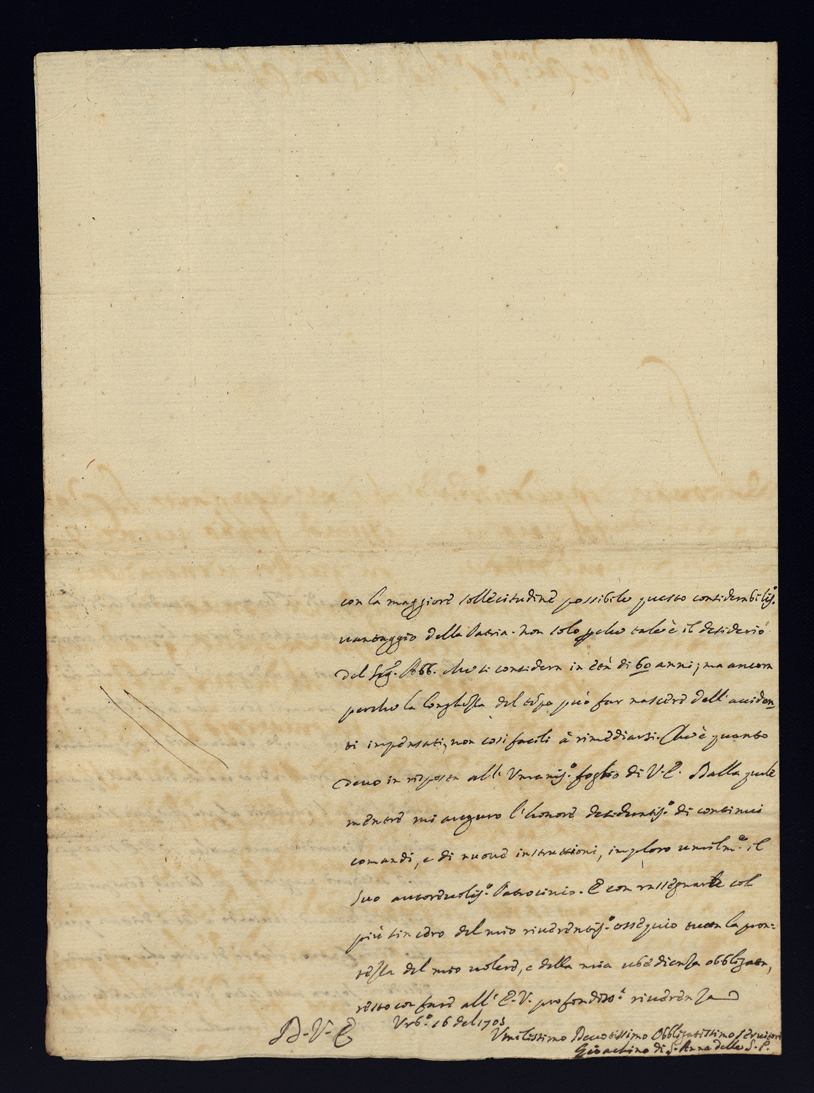 con la maggiore sollecitudine possibile questo considerabiliss.º
vantaggio della Patria. non solo perche tale è il desiderio
del Sig.r Abb. che si considera in età di 60 anni; ma ancora
perche la longhezza del tẽpo può far nascere dell'acciden-
ti impensati, non così facili à rimediarsi. Che è quanto
devo in risposta all'Umaniss.º foglio di V.E. Dalla quale
mentre mi auguro l'honore desideratiss.º di continui
comandi, e di nuove instruttioni, imploro umilm.e il
suo autorevoliss.º Patrocinio. E con rassegnarle col
più sincero del mio riverentiss.º ossequio tutta la pron-
tezza del mio volere, e della mia ubedienza obbligata,
resto con fare all'E.V. profondiss.ª riverenza
Urb.º 16 del 1703
D. V. E.
Umilissimo Devotissimo Obbligatissimo Servitore
Gioachino di S. Anna delle S. P.